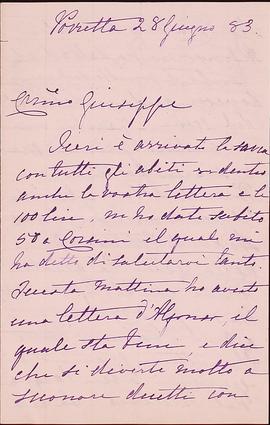 Porretta 28 Giugno 83.
Cr̃mo Giuseppe
Ieri è arrivata la
con tutti gli abiti
anche la vostra lettera e le
100 lire, ne ho date subito
50 a Corsini il quale mi
ha detto di salutarvi tanto.
Questa mattina ho avuto
una lettera d'Alfonso, il
quale sta bene, e dice
che si diverte molto a
suonare duetti con